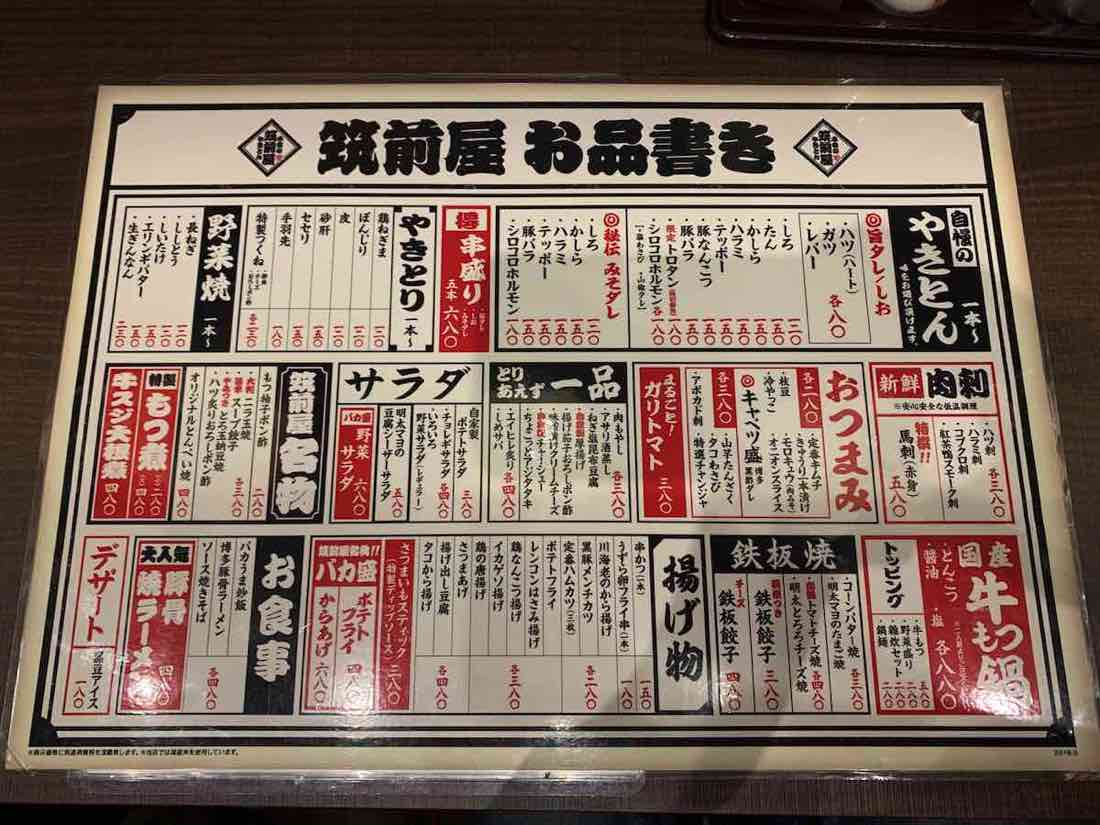 筑前屋 お品書き
自慢の
やきとん
一本〜
◎旨タレ/しお
・ハツ(ハート)
・ガツ
・レバー
各八〇
・しろ 一二〇
・たん 一五〇
・かしら 一五〇
・ハラミ 一五〇
・テッポー 一五〇
・豚なんこつ 一五〇
・豚バラ 一五〇
限定 トロタン
・シロコロホルモン 各一八〇
◎秘伝みそダレ
・しろ 一二〇
・かしら 一五〇
・ハラミ 一五〇
・テッポー 一五〇
・豚バラ 一五〇
・シロコロホルモン 一八〇
得
串盛り
五本 六八〇
やきとり
一本〜
鶏ねぎま
ぼんじり
皮
砂肝
セセリ
手羽先
特製つくね
各二三〇
野菜焼
一本〜
・長ねぎ
・ししとう
・しいたけ
・エリンギバター
・生ぎんなん
新鮮 肉刺
※安心安全な低温調理
・ハツ刺
・ハラミ刺
・コブクロ刺
・紅茶鴨スモーク刺
各三八〇
特撰!!
馬刺(赤身)
五八〇
おつまみ
・定番キムチ
・きゅうり一本漬け
・モロキュウ(肉みそ)
・オニオンスライス
・枝豆
・冷やっこ
各二八〇
◎キャベツ盛
博多
黒酢ダレ
・山芋たんざく
・タコわさび
・特選チャンジャ
・アボカド刺
各三八〇
まるごと!
ガリトマト
三八〇
とりあえず 一品
・肉もやし
・アサリ酒蒸し
・ねぎ塩昆布豆腐
・揚げ茄子おろしポン酢
・味噌漬けクリームチーズ
・ちょこっとアンタタキ
・エイヒレ炙り
・〆サバ
各三八〇
各四八〇
サラダ
自家製
ポテトサラダ
三八〇
・チョレギサラダ
・いろいろ
野菜サラダ(レギュラー)
各四八〇
明太マヨの
豆腐シーザーサラダ
五八〇
バカ盛
野菜
サラダ
六八〇
筑前屋名物
もつ柚子ポン酢 二八〇
・ニラ玉焼
・スープ餃子
・やみつきとろ玉納豆
・ハツ炙りおろしポン酢
各三八〇
オリジナルとんぺい焼
四八〇
特製
もつ煮
牛スジ大根煮
四八〇
国産
牛もつ鍋
・とんこつ
・醤油
・塩
各八八〇
トッピング
牛もつ
野菜盛り
雑炊セット
鍋麺
鉄板焼
・コーンバター焼
・明太マヨのたまご焼
各三八〇
・トマトチーズ焼
・明太とろろチーズ焼
各四八〇
鉄板餃子
三八〇
チーズ
鉄板餃子
四八〇
揚げ物
串かつ(一本) 一五〇
うずら卵フライ串(一本) 一八〇
川海老のから揚げ
黒豚メンチカツ
定番ハムカツ(三枚)
各二八〇
ポテトフライ
レンコンはさみ揚げ
鶏なんこつ揚げ
イカゲソ揚げ
各三八〇
鶏の唐揚げ
さつまあげ
揚げ出し豆腐
タコから揚げ
各四八〇
さつまいもスティック
(特製ディップソース)
二八〇
筑前屋名物!!
バカ盛
ポテト
フライ
各四八〇
からあげ
六八〇
お食事
バカうま炒飯
博多豚骨ラーメン
ソース焼きそば
各四八〇
大人気
豚骨
焼ラーメン
四八〇
デザート
黒豆アイス
一八〇
※表示価格に別途消費税を頂戴致します。※当店では国産米を使用しています。